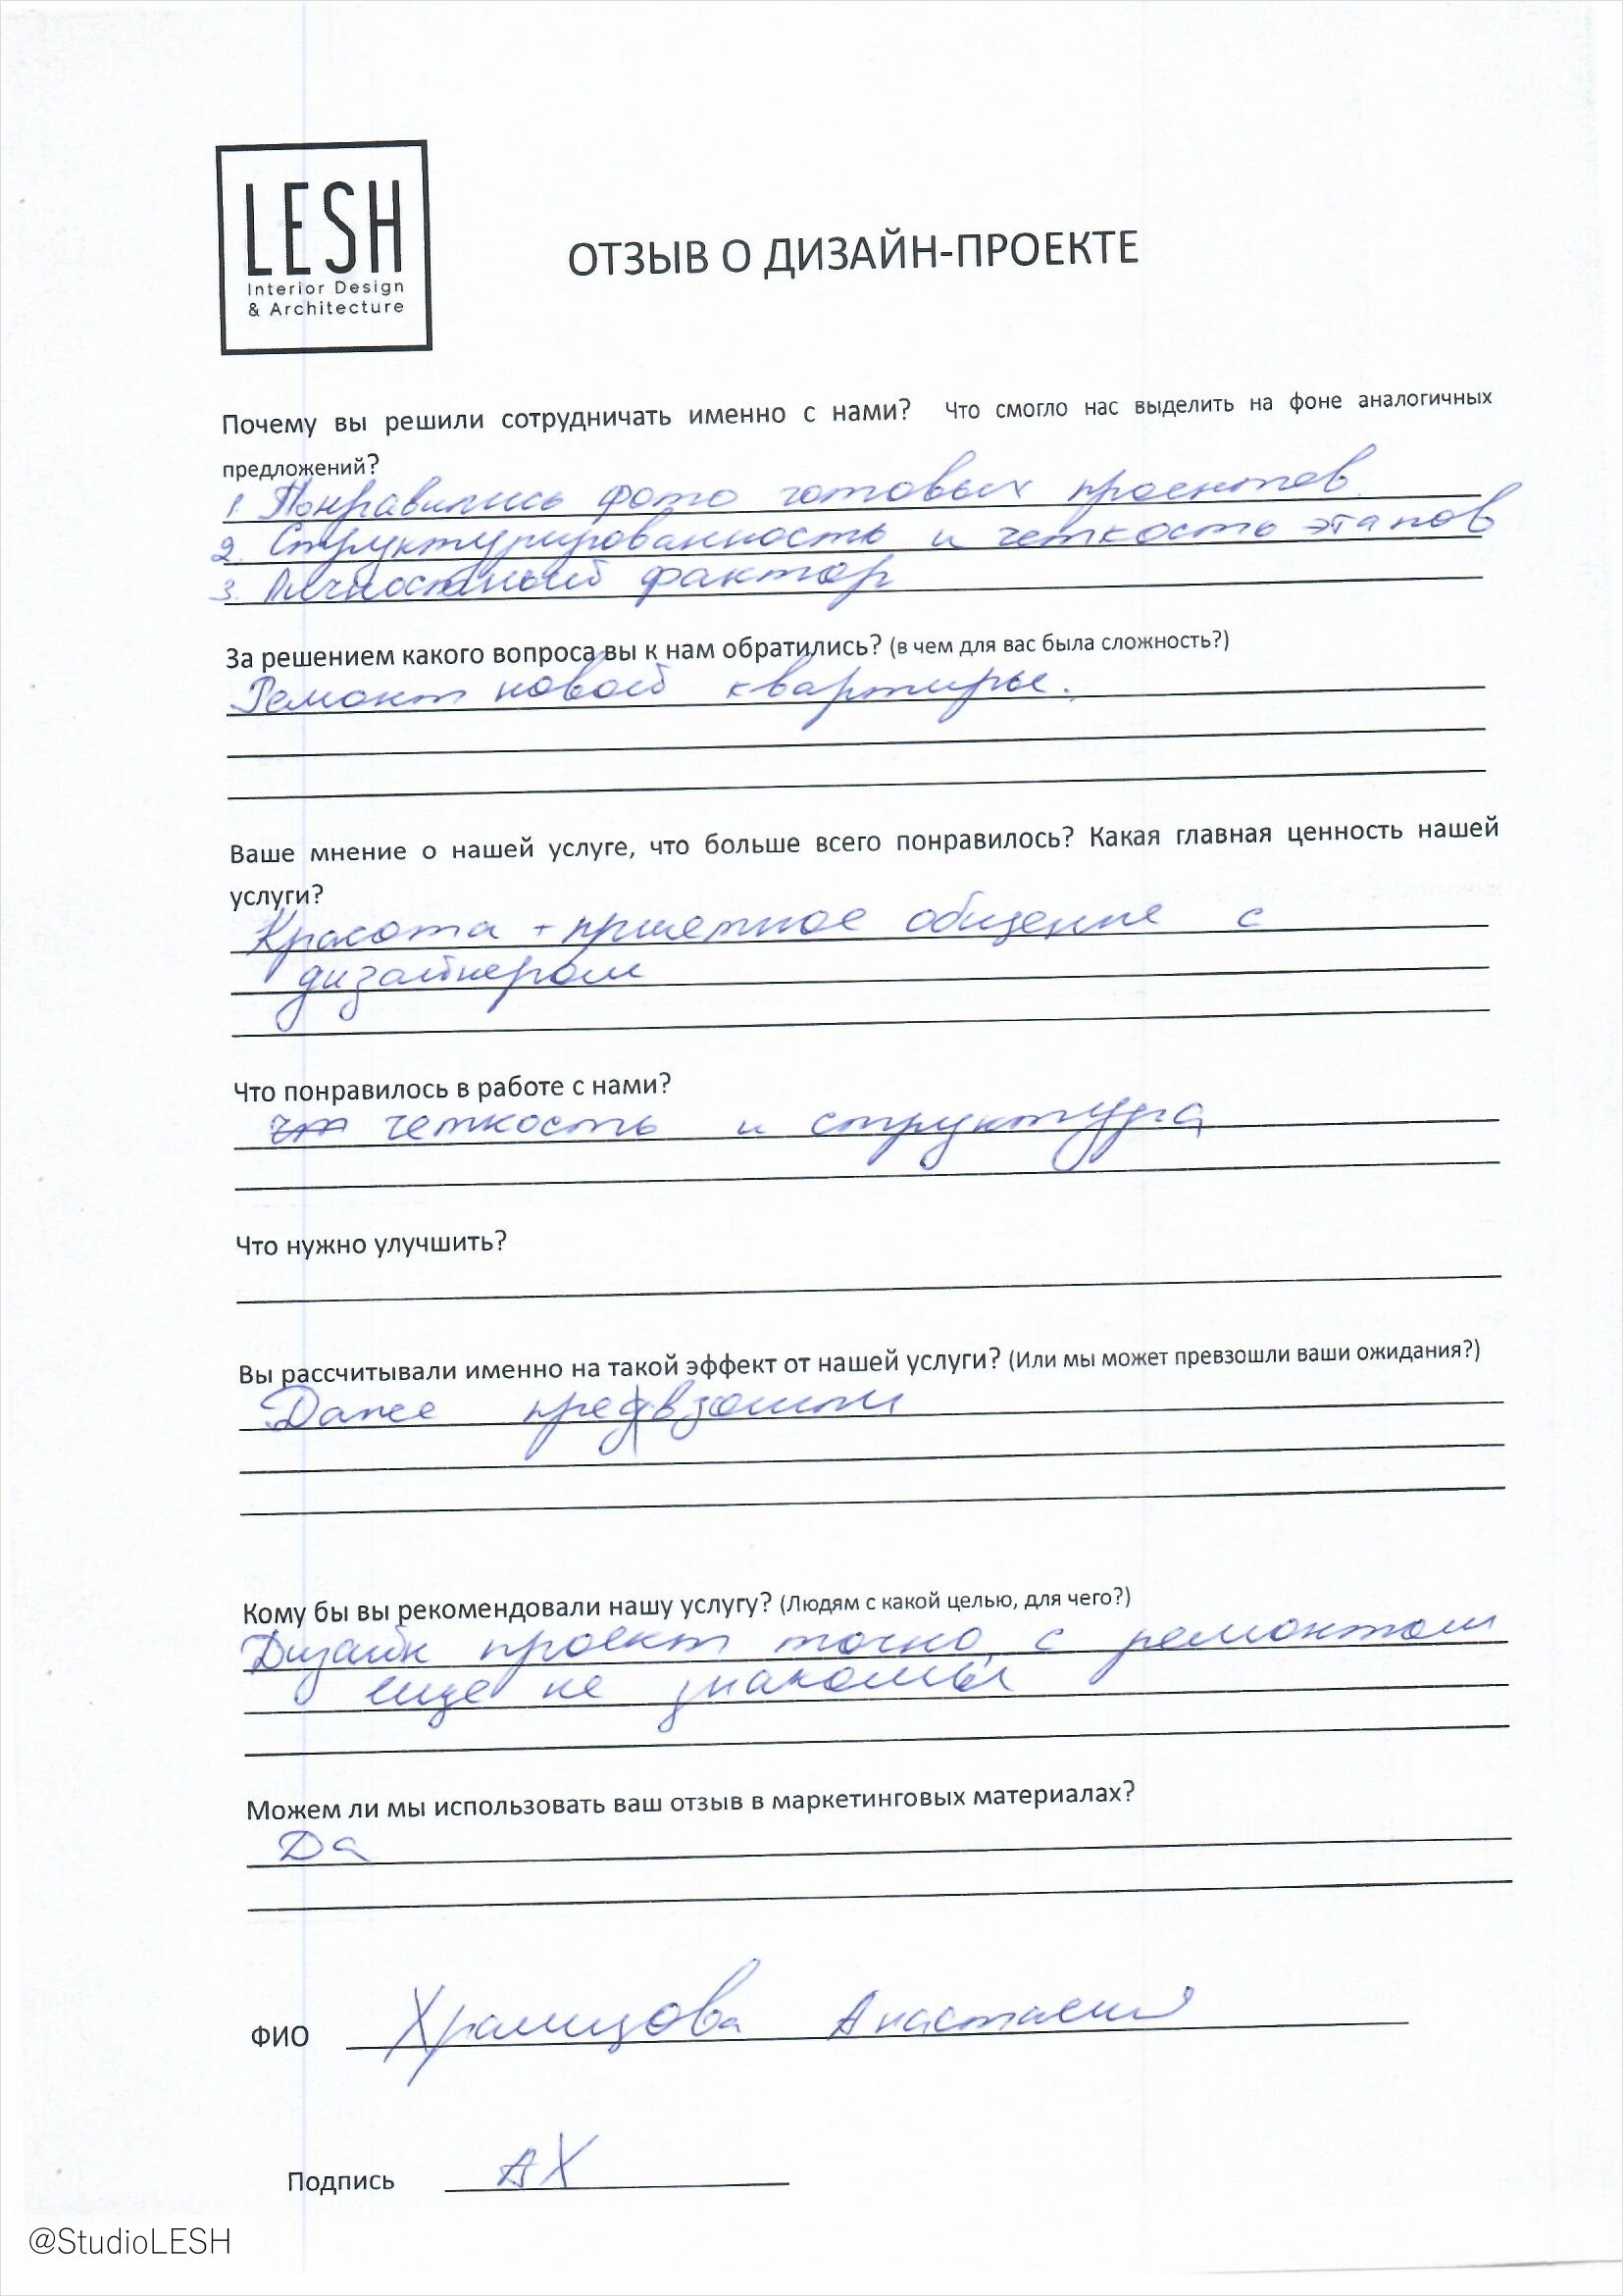 LESH
Interior Design
& Architecture
ОТЗЫВ О ДИЗАЙН-ПРОЕКТЕ
Почему вы решили сотрудничать именно с нами? Что смогло нас выделить на фоне аналогичных
предложений?
1. Понравились фото готовых проектов
2. Структурированность и четкость этапов
3. Личностный фактор
За решением какого вопроса вы к нам обратились? (в чем для вас была сложность?)
Ремонт новой квартиры.
Ваше мнение о нашей услуге, что больше всего понравилось? Какая главная ценность нашей
услуги?
Красота + приятное общение с
дизайнером
Что понравилось в работе с нами?
четкость и структура
Что нужно улучшить?
Вы рассчитывали именно на такой эффект от нашей услуги? (Или мы может превзошли ваши ожидания?)
Даже превзошли
Кому бы вы рекомендовали нашу услугу? (Людям с какой целью, для чего?)
Дизайн проект точно, с ремонтом
еще не знакомы
Можем ли мы использовать ваш отзыв в маркетинговых материалах?
Да
ФИО Храмцова Анастасия
Подпись АХ
@StudioLESH